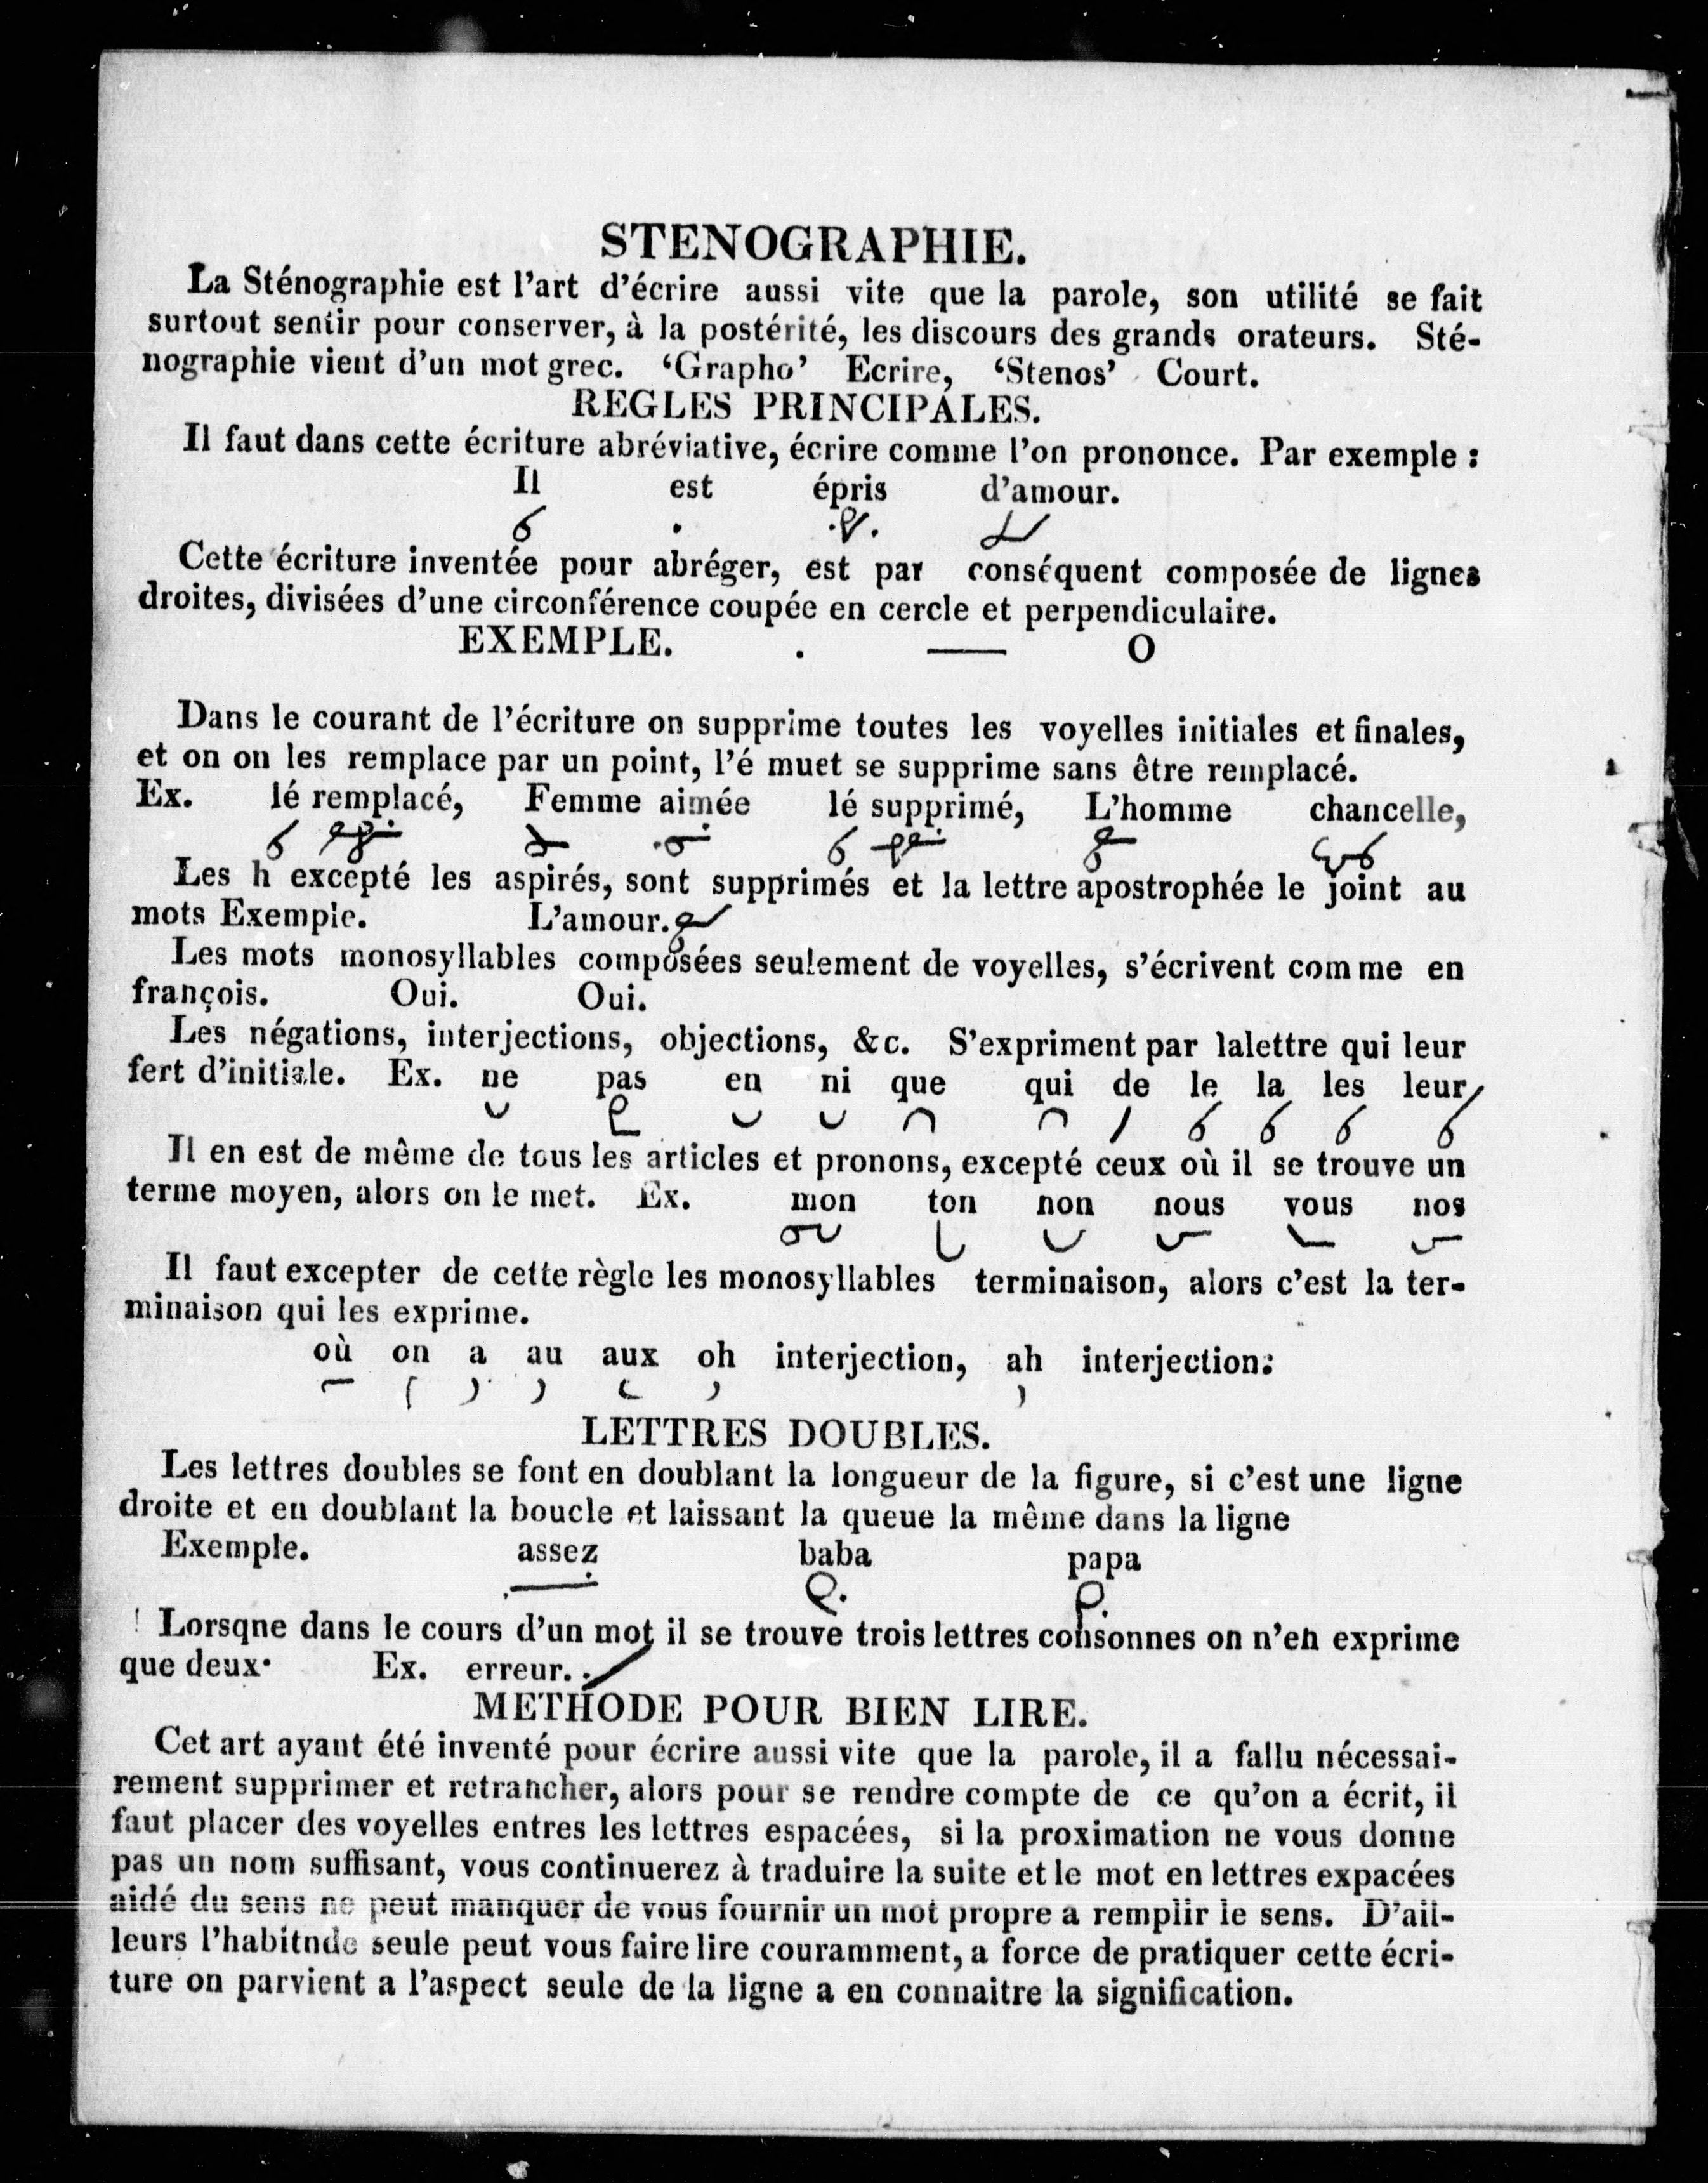 STENOGRAPHIE.
La Sténographie est l'art d'écrire aussi vite que la parole, son utilité se fait
surtout sentir pour conserver, à la postérité, les discours des grands orateurs. Sté-
nographie vient d'un mot grec. ‘Grapho’ Ecrire, ‘Stenos’ Court.
REGLES PRINCIPALES.
Il faut dans cette écriture abréviative, écrire comme l'on prononce. Par exemple :
Il est épris d'amour.
Cette écriture inventée pour abréger, est par conséquent composée de lignes
droites, divisées d'une circonférence coupée en cercle et perpendiculaire.
EXEMPLE. . — O
Dans le courant de l'écriture on supprime toutes les voyelles initiales et finales,
et on on les remplace par un point, l'é muet se supprime sans être remplacé.
Ex. lé remplacé, Femme aimée lé supprimé, L'homme chancelle,
Les h excepté les aspirés, sont supprimés et la lettre apostrophée le joint au
mots Exemple. L'amour.
Les mots monosyllables composées seulement de voyelles, s'écrivent comme en
françois. Oui. Oui.
Les négations, interjections, objections, &c. S'expriment par lalettre qui leur
fert d'initiale. Ex. ne pas en ni que qui de le la les leur
Il en est de même de tous les articles et pronons, excepté ceux où il se trouve un
terme moyen, alors on le met. Ex. mon ton non nous vous nos
Il faut excepter de cette règle les monosyllables terminaison, alors c'est la ter-
minaison qui les exprime.
où on a au aux oh interjection, ah interjection:
LETTRES DOUBLES.
Les lettres doubles se font en doublant la longueur de la figure, si c'est une ligne
droite et en doublant la boucle et laissant la queue la même dans la ligne
Exemple. assez baba papa
Lorsqne dans le cours d'un mot il se trouve trois lettres consonnes on n'en exprime
que deux· Ex. erreur.
METHODE POUR BIEN LIRE.
Cet art ayant été inventé pour écrire aussi vite que la parole, il a fallu nécessai-
rement supprimer et retrancher, alors pour se rendre compte de ce qu'on a écrit, il
faut placer des voyelles entres les lettres espacées, si la proximation ne vous donne
pas un nom suffisant, vous continuerez à traduire la suite et le mot en lettres expacées
aidé du sens ne peut manquer de vous fournir un mot propre a remplir le sens. D'ail-
leurs l'habitnde seule peut vous faire lire couramment, a force de pratiquer cette écri-
ture on parvient a l'aspect seule de la ligne a en connaitre la signification.